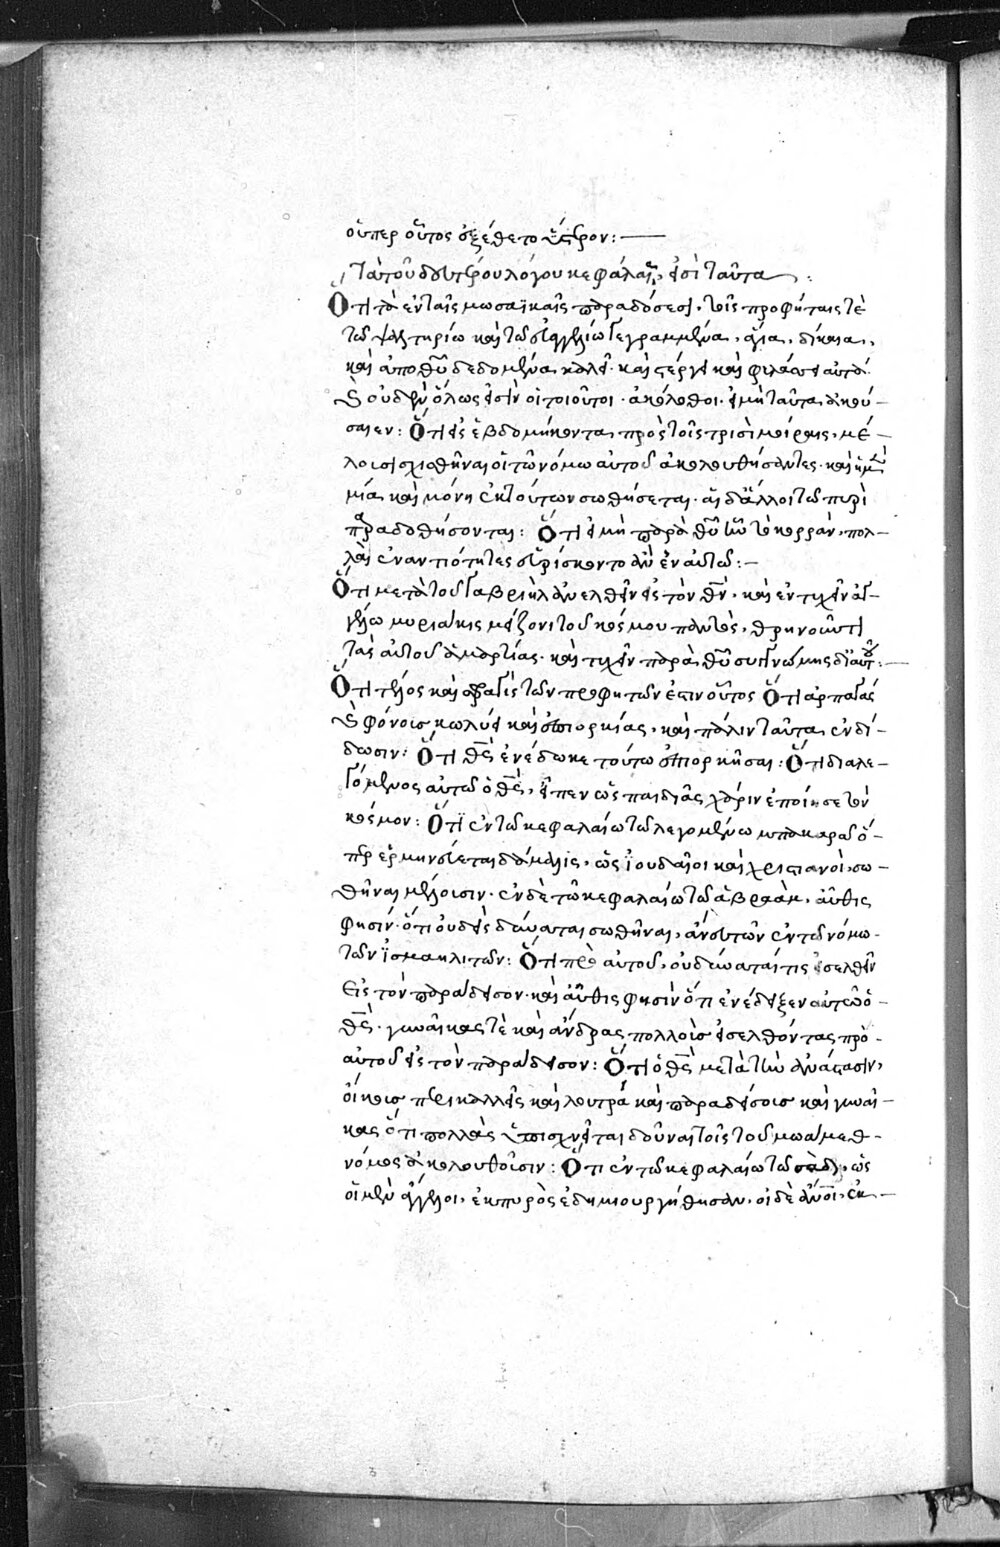 οὕπερ οὗτος ἐξέθετο ὕστερον:—
Τὰ τοῦ δευτέρου λόγου κεφάλαια, εἰσὶ ταῦτα:
Ὅτι τὰ ἐν ταῖς μωσαϊκαῖς παραδόσεσι, τοῖς προφήταις τὲ
τῶ ψαλτηρίω καὶ τῶ εὐαγγελίω γεγραμμένα, ἅγια, δίκαια,
καὶ ἀπο θῦ δεδομένα καλεῖ. καὶ στέργει καὶ φιλεῖ αὐτά.
Ὡς οὐδὲν ὅλως εἰσὶν οἱ τοιοῦτοι ἀκόλουθοι εἰ μὴ ταῦτα ἀκού-
σαιεν: Ὅτι εἰς ἑβδομήκοντα πρὸς τοῖς τρισὶ μοίραις, μέ-
λοισι σχισθῆναι οἱ τῶ νόμω αὐτοῦ ἀκολουθήσαντες. καὶ
μία καὶ μόνη ἐκ τούτων σωθήσεται. αἱ δ' ἄλλοι τῶ πυρὶ
παραδοθήσονται: Ὅτι εἰ μὴ παρὰ θῦ ἦν τὸ κορρὰν, πολ-
λαὶ ἐναντιότητες εὑρίσκοντο ἂν ἐν αὐτῶ:—
Ὅτι μετὰ τοῦ γαβριὴλ ἀνελθεῖν εἰς τὸν θν, καὶ ἐντυχεῖν ἀγ-
γέλω μυριάκις μείζονι τοῦ κόσμου παντὸς, θρηνοῦντι
τὰς αὐτοῦ ἁμαρτίας. καὶ τυχεῖν παρὰ θῦ συγγνώμης δι' αὐτοῦ:—
Ὅτι τέλος καὶ σφραγὶς τῶν προφητῶν ἐστιν οὗτος Ὅτι ἁρπαγὰς
Ὡς φόνοις κωλύει καὶ ἐπιορκίας, καὶ πάλιν ταῦτα ἐνδί-
δωσιν: Ὅτι θς ἐνέδωκε τούτω ἐπιορκῆσαι: Ὅτι διαλε-
γόμενος αὐτῶ ὁ θς, εἶπεν ὡς παιδιᾶς χάριν ἐποίησε τὸν
κόσμον: Ὅτι ἐν τῶ κεφαλαίω τῶ λεγομένω μπακαρα ὅ-
περ ἑρμηνεύεται δάμαλις, ὡς ἰουδαῖοι καὶ χριστιανοὶ, σω-
θῆναι μέλοισιν. ἐν δὲ τῶ κεφαλαίω τῶ ἀβραὰμ, αὖθις
φησίν. ὅτι οὐδεὶς δύναται σωθῆναι, ἄνευ τῶν ἐν τῶ νόμω
τῶν ἰσμαηλιτῶν: Ὅτι πρὸ αὐτοῦ, οὐ δύναταί τις εἰσελθεῖν
Εἰς τὸν παράδεισον. καὶ αὖθις φησὶν ὅτι ἐνέδειξεν αὐτῶ ὁ-
θς. γυναῖκας τὲ καὶ ἄνδρας πολλοὺς εἰσελθόντας πρὸ-
αὐτοῦ εἰς τὸν παράδεισον: Ὅτι ὁ θς μετὰ τὴν ἀνάστασιν,
οἴκοις περικαλλεῖς καὶ λουτρὰ καὶ παραδείσοις καὶ γυναῖ-
κας ὅτι πολλὰς ὑπισχνεῖται δοῦναι τοῖς τοῦ μωάμεθ-
νόμος ἀκολουθοῦσιν: Ὅτι ἐν τῶ κεφαλαίω τῶ σὰδ, ὡς
οἱ μὲν ἄγγελοι, ἐκ πυρὸς ἐδημιουργήθησαν, οἱ δὲ ἄνοι, ἐκ-